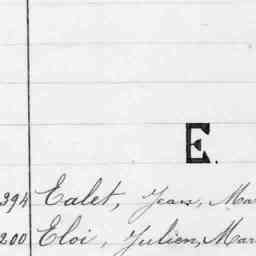 E.
394 Ealet, Jean, Mar
200 Eloi, Julien, Mar